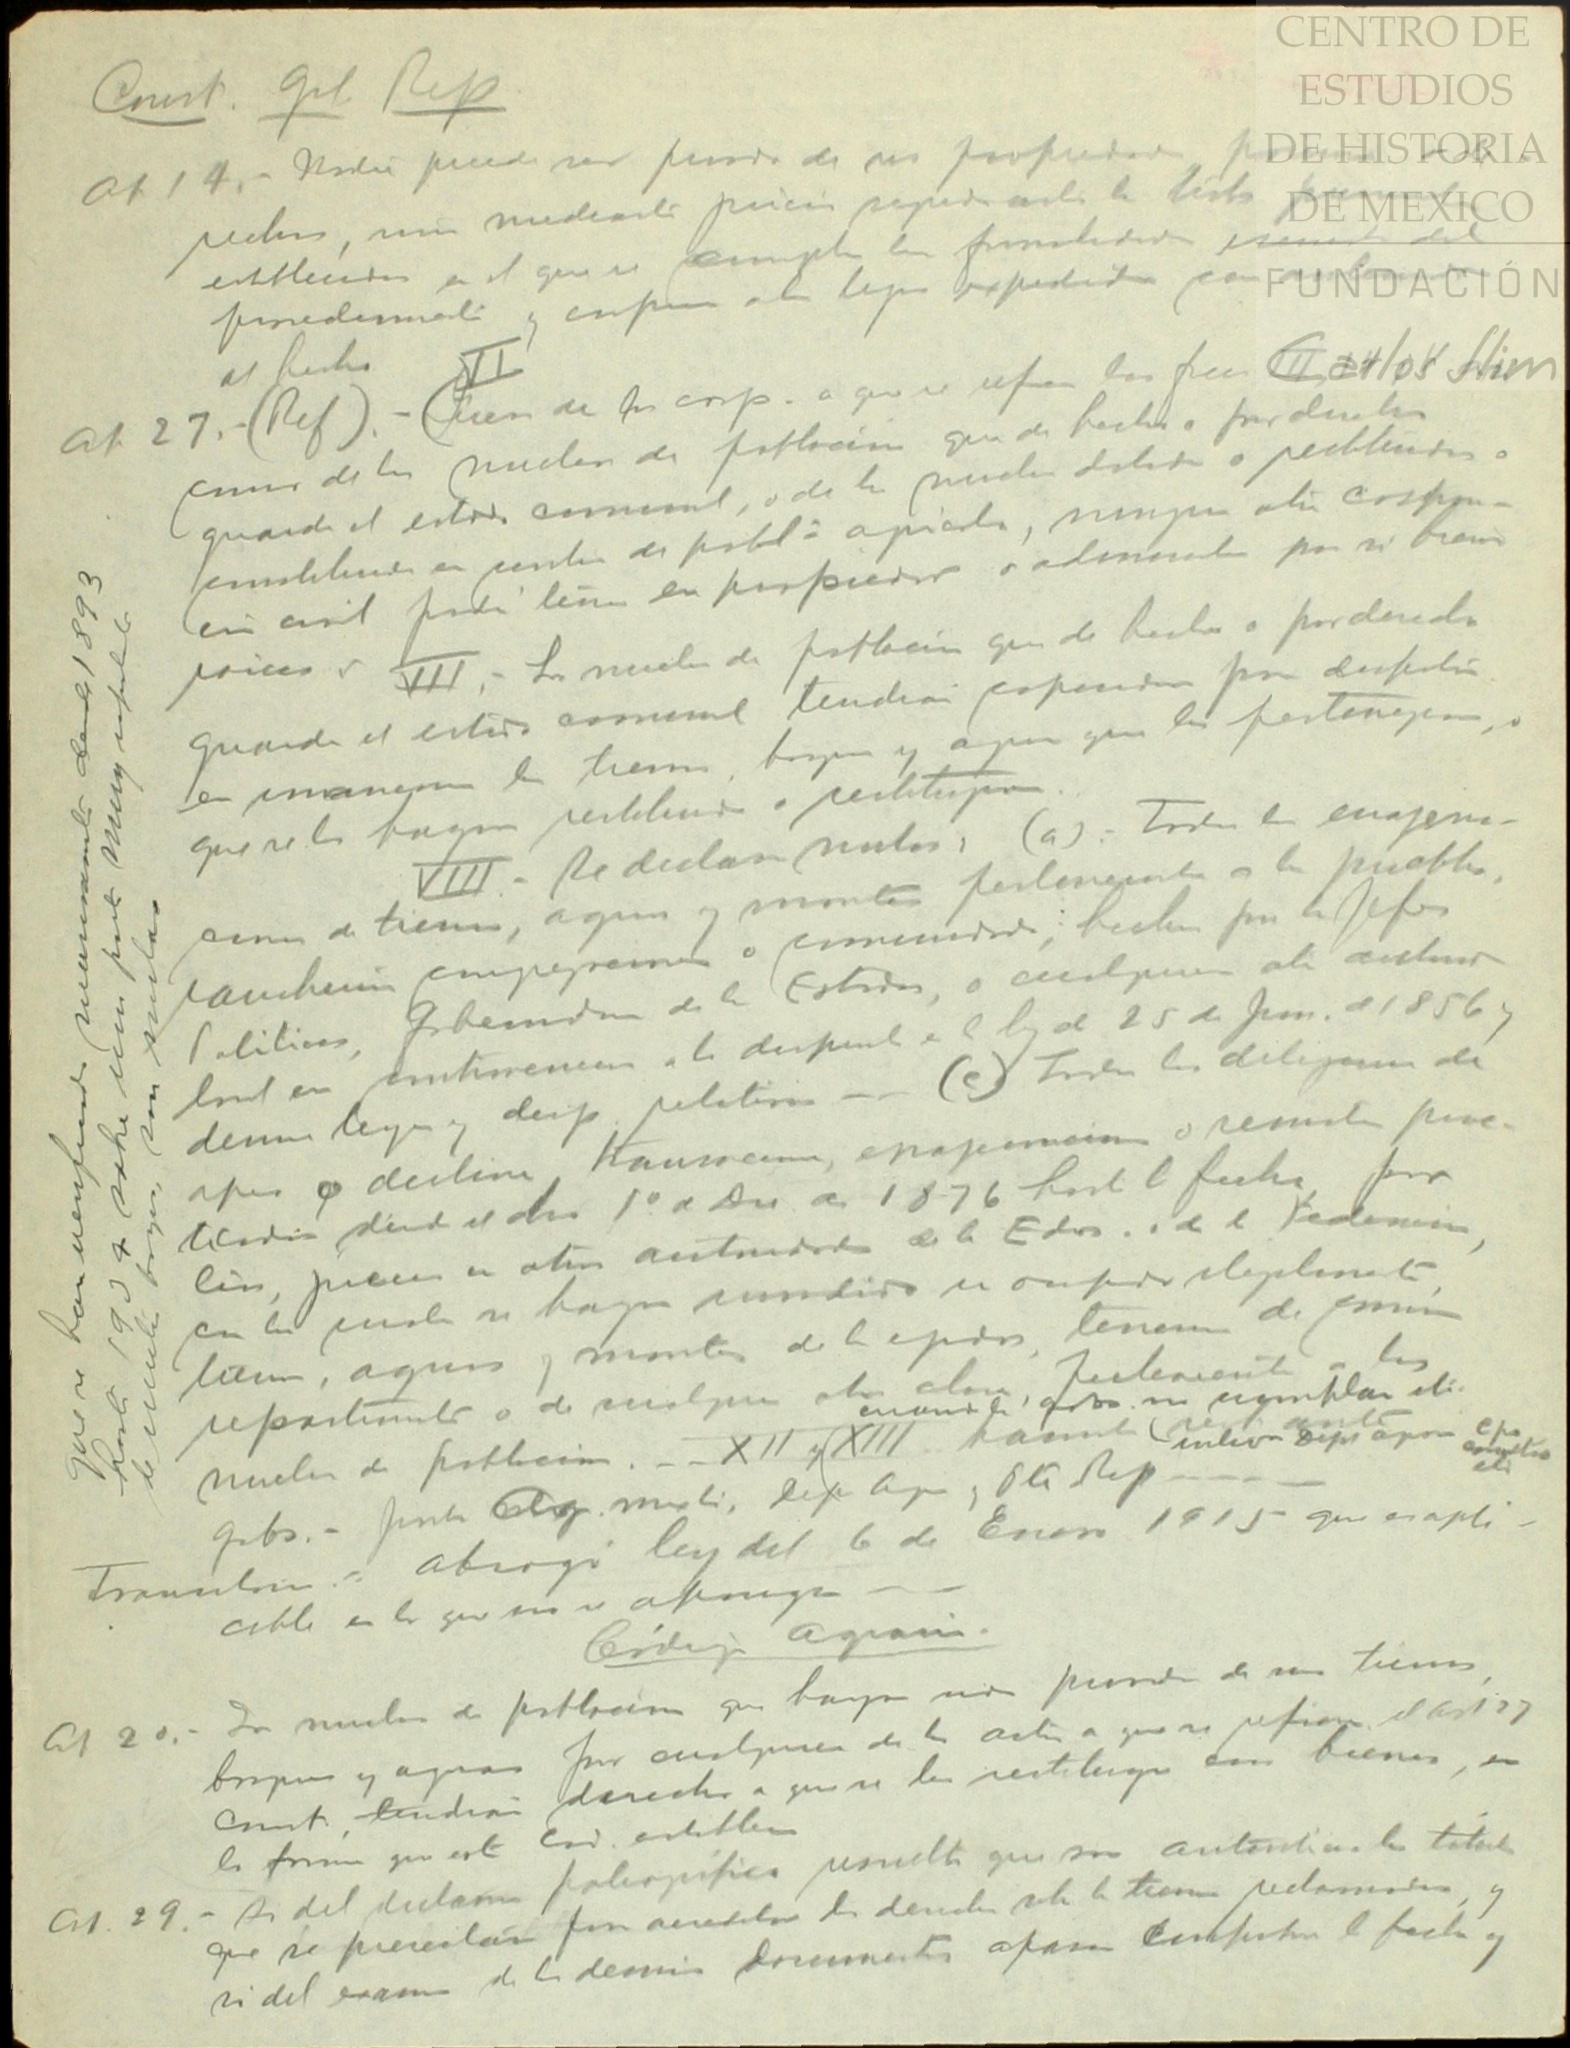 CENTRO DE
ESTUDIOS
DE HISTORIA
DE MEXICO
FUNDACIÓN
Carlos Slim
Const. Gral Rep.
Art 14.- Nadie puede ser privado de sus propiedades
sino mediante juicio seguido ante los
establecidos en el que se cumplan las formalidades esenciales del
procedimiento y conforme a las leyes expedidas con
al hecho VII
Art 27.- (Ref).- Fuera de las corp. a que se refieren las frac III,
como de los nucleos de población que de hecho o por derecho
guarden el estado comunal, o de los nucleos dotados o restituidos o
constituidos en centro de pobl. agricola, ninguna otra corpora-
cion civil podrá tener en propiedad o administrar por si bienes
raices VII.- Los nucleos de población que de hecho o por derecho
guarden el estado comunal tendrán capacidad para disfrutar
en comun las tierras, bosques y aguas que les pertenezcan, o
que se les hayan restituido o restituyeren.
VIII.- Se declaran nulas: (a).- Todas las enagena-
ciones de tierras, aguas y montes pertenecientes a los pueblos,
rancherías congregaciones o comunidades, hechas por los Jefes
Politicos, Gobernadores de los Estados, o cualquiera otra autoridad
local en contravencion a lo dispuesto en la ley de 25 de Jun. de 1856 y
demas leyes y disp. relativas -- (c) Todas las diligencias de
apeo o deslinde, transacciones, enagenaciones o remates prac-
ticados desde el dia 1º de Dic de 1876 hasta la fecha, por
cias, jueces u otras autoridades de los Edos. o de la Federacion,
con los cuales se hayan invadido u ocupado ilegalmente
tierras, aguas y montes de los ejidos, terrenos de comun
repartimiento o de cualquier otra clase, pertenecientes a los
nucleos de población. -- XII y XIII
cuando gobs. no cumplan
gobs.- junta Agr. mixta, Dep Agr y Pte Rep -----
Transitorio.- Abrogó ley del 6 de Enero 1915 que es apli-
cable en lo que no se oponga --
Código Agrario.
Art 20.- Los nucleos de población que hayan sido privados de sus tierras,
bosques y aguas por cualquiera de los actos a que se refiere el Art 27
Const, tendrán derecho a que se les restituyan esos bienes, en
la forma que este Cod. establece
Art. 29.- Si del dictamen paleográfico resulta que son autenticos los titulos
que se presentaran para acreditar los derechos sobre las tierras reclamadas, y
si del examen de los demas documentos aparece comprobada la fecha y
que se han venido desde 1893
hasta 1934 sobre una parte muy
de bosques, son nulas